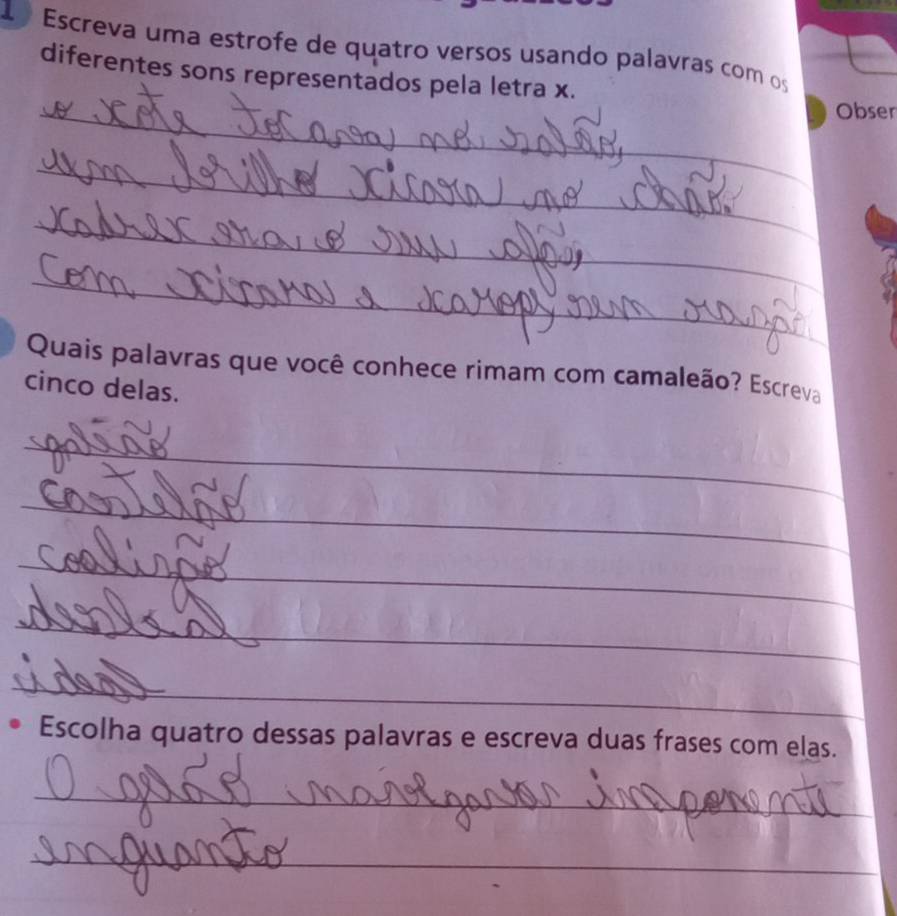 1 Escreva uma estrofe de quatro versos usando palavras com os
diferentes sons representados pela letra x.
Obser
o xote tocava no salão,
um brilho xicara no chão.
xadrez era o seu afão,
Com xicara e xarope, sem razão.
Quais palavras que você conhece rimam com camaleão? Escreva
cinco delas.
galeão
castelão
coalizão
desleal
ideal
Escolha quatro dessas palavras e escreva duas frases com elas.
O galeão navegava imponente
enquanto